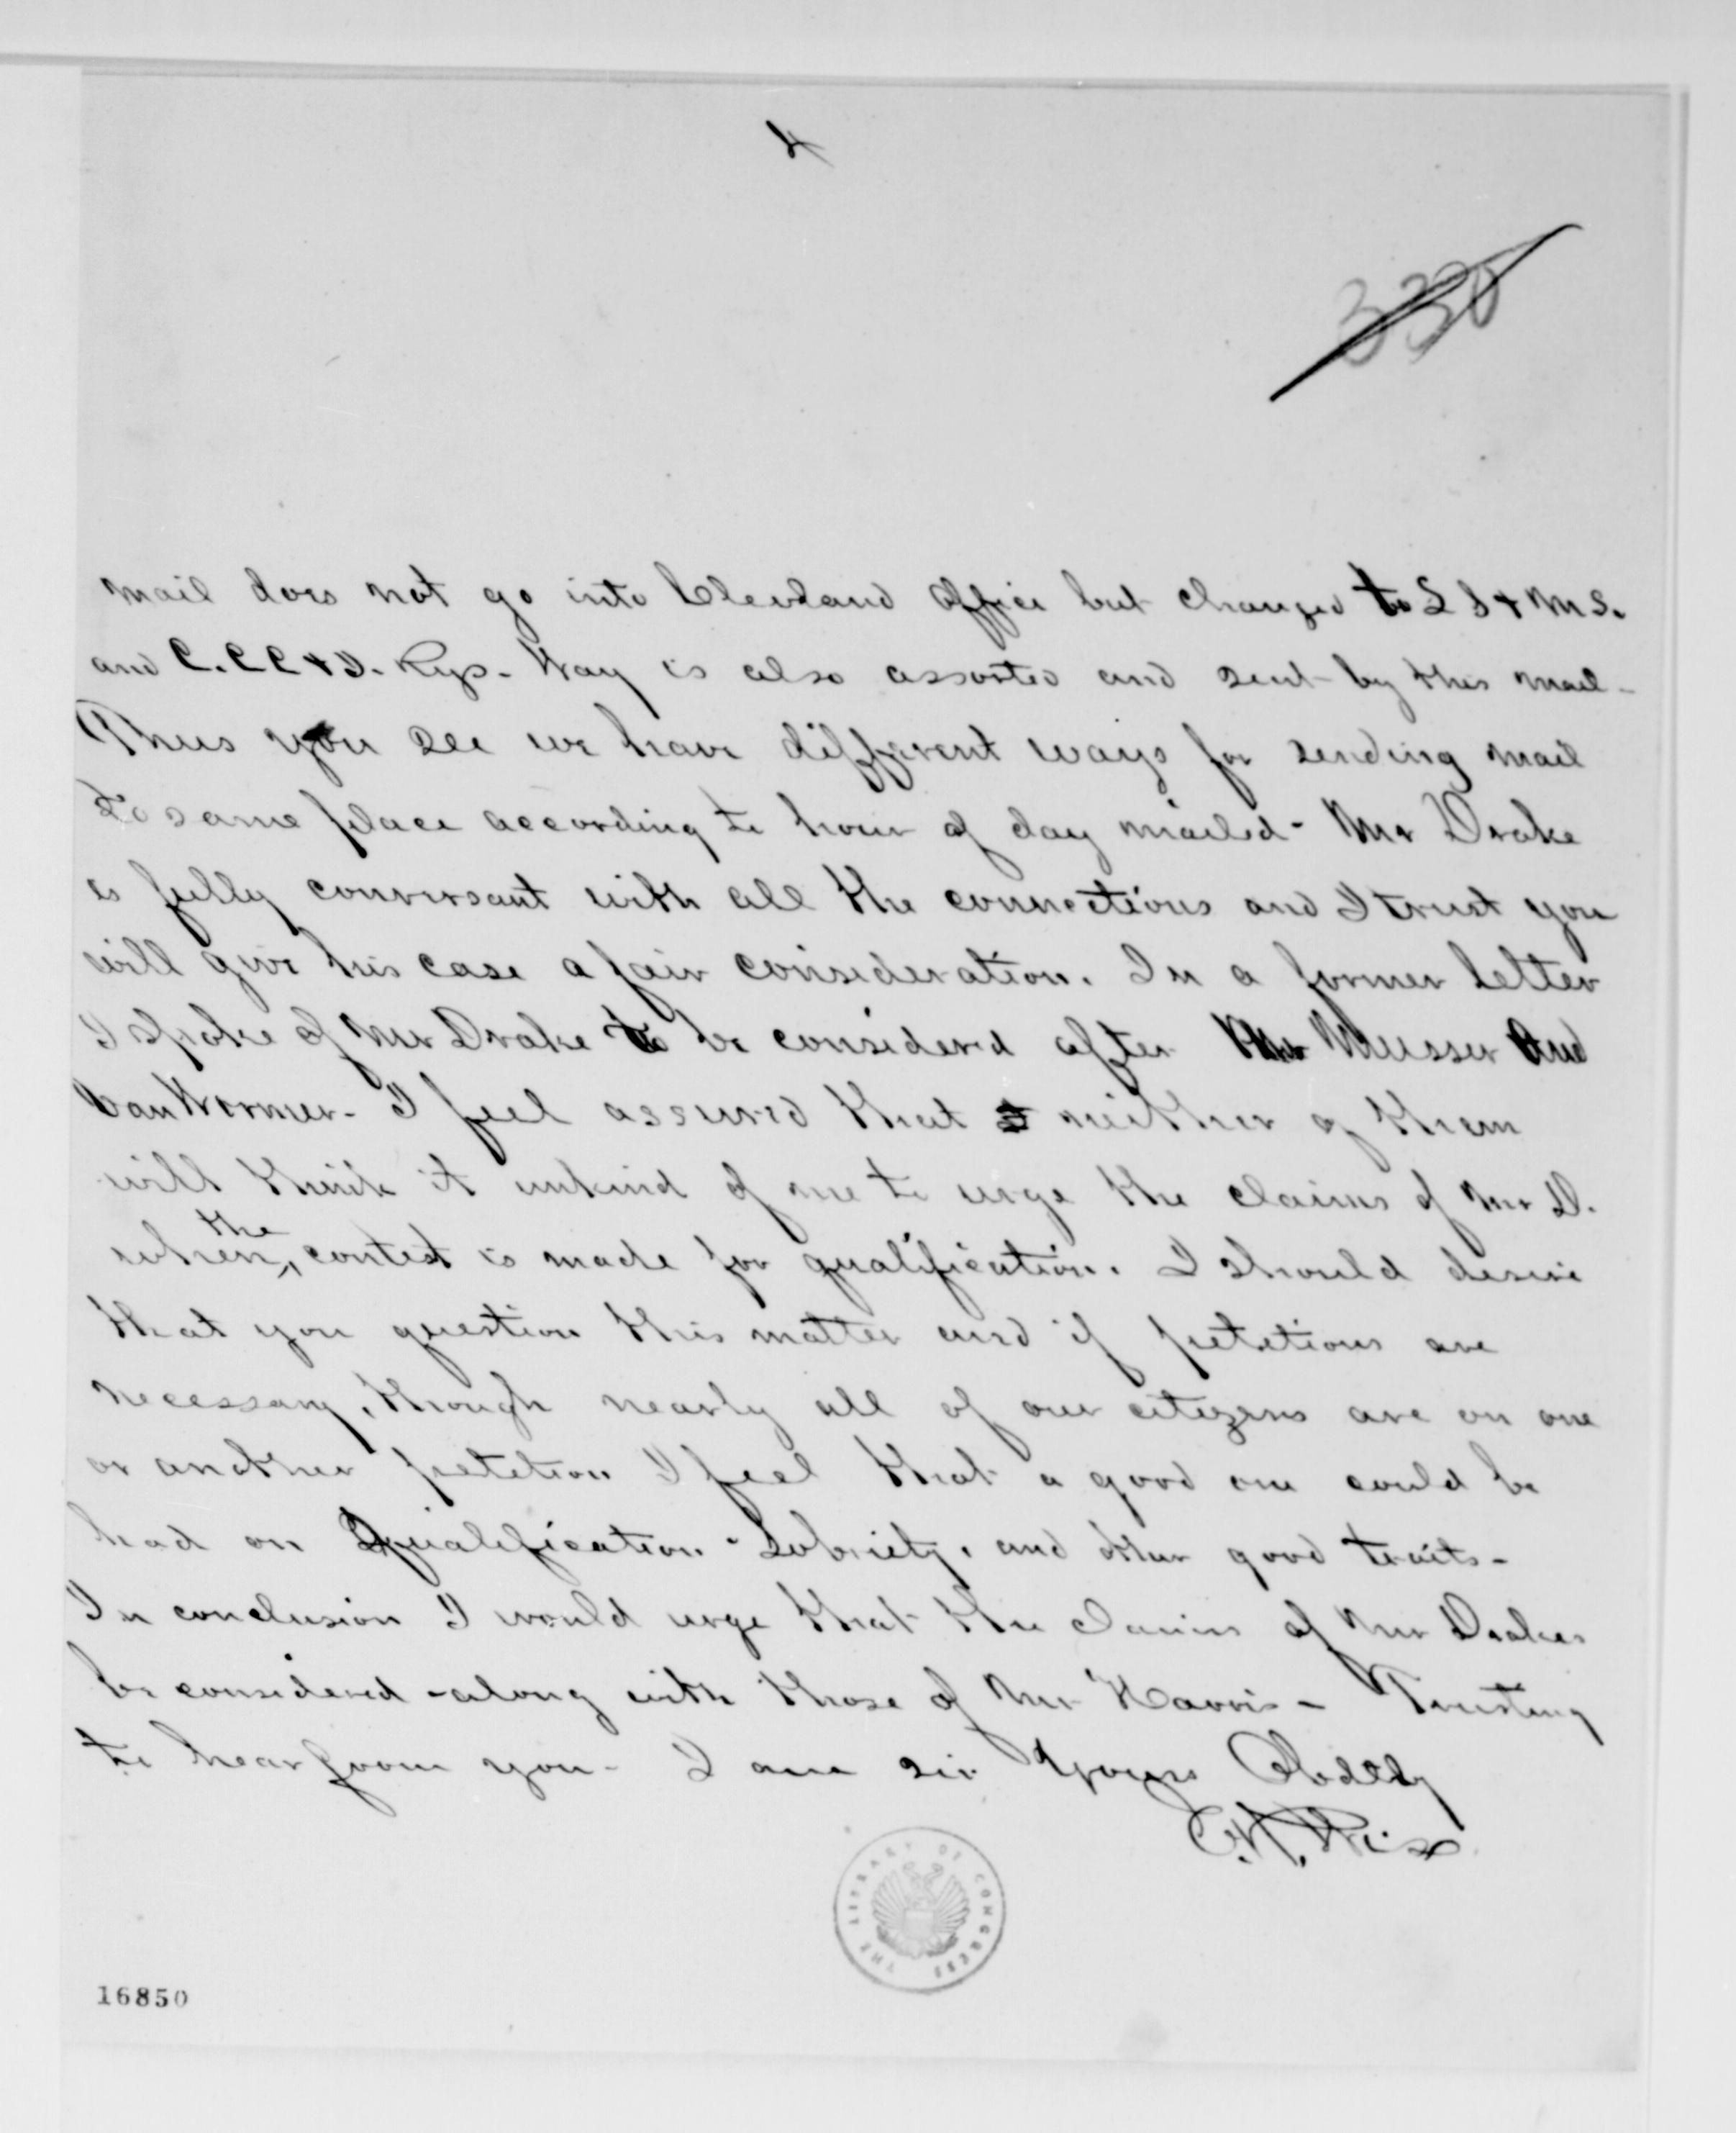 4
330
mail does not go into Cleveland office but changed to L S & M S.
and C.CC & I. Rys. Way is also assorted and sent by this mail -
Thus you see we have different ways for sending mail
to same place according to hour of day mailed - Mr Drake
is fully conversant with all the connections and I trust you
will give his case a fair consideration. In a former letter
I spoke of Mr Drake to be considered after Mr Musser and
VanWormer - I feel assured that neither of them
will think it unkind of me to urge the claims of Mr D.
when the contest is made for qualification. I should desire
that you question this matter and if petitions are
necessary, though nearly all of our citizens are on one
or another petition I feel that a good one could be
had on Qualification - Sobriety, and other good traits -
In conclusion I would urge that the claims of Mr Drakes
be considered along with those of Mr Harris - Trusting
to hear from you - I am sir Yours Obdtly
THE LIBRARY OF CONGRESS
16850